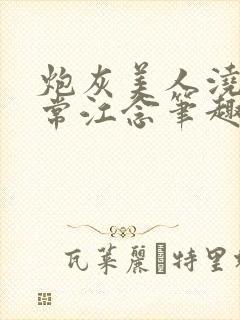 炮灰美人浇
常江念笔趣
瓦莱丽特里